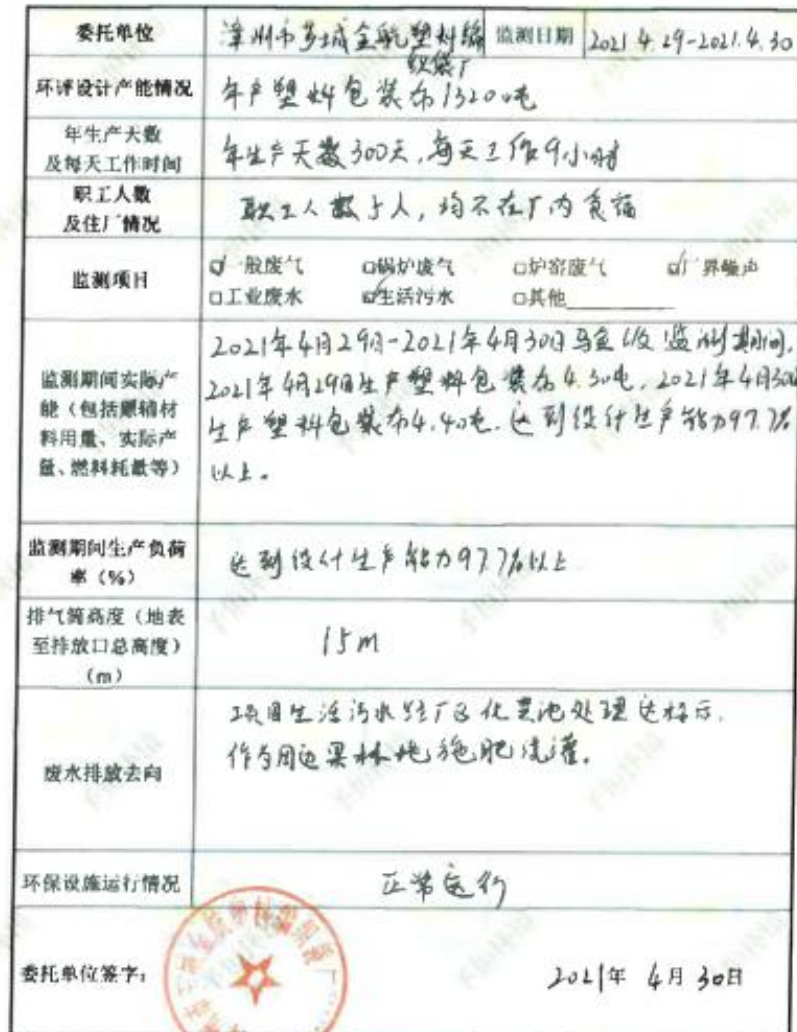 委托单位 漳州市芗城金航塑料编织袋厂 监测日期 2021.4.29-2021.4.30
环评设计产能情况 年产塑料包装布1320吨
年生产天数
及每天工作时间 年生产天数300天,每天工作9小时
职工人数
及住厂情况 职工人数5人,均不在厂内食宿
监测项目 ☑一般废气 □锅炉废气 □炉窑废气 ☑厂界噪声
□工业废水 ☑生活污水 □其他
监测期间实际产
能(包括原辅材
料用量、实际产
量、燃料耗量等)
2021年4月29日-2021年4月30日验收监测期间,
2021年4月29日生产塑料包装布4.30吨,2021年4月30日
生产塑料包装布4.40吨.达到设计生产能力97.7%
以上。
监测期间生产负荷
率(%) 达到设计生产能力97.7%以上
排气筒高度(地表
至排放口总高度)
(m) 15m
废水排放去向
项目生活污水经厂区化粪池处理达标后,
作为周边果林地施肥浇灌。
环保设施运行情况 正常运行
委托单位签字: 2021年 4月 30日